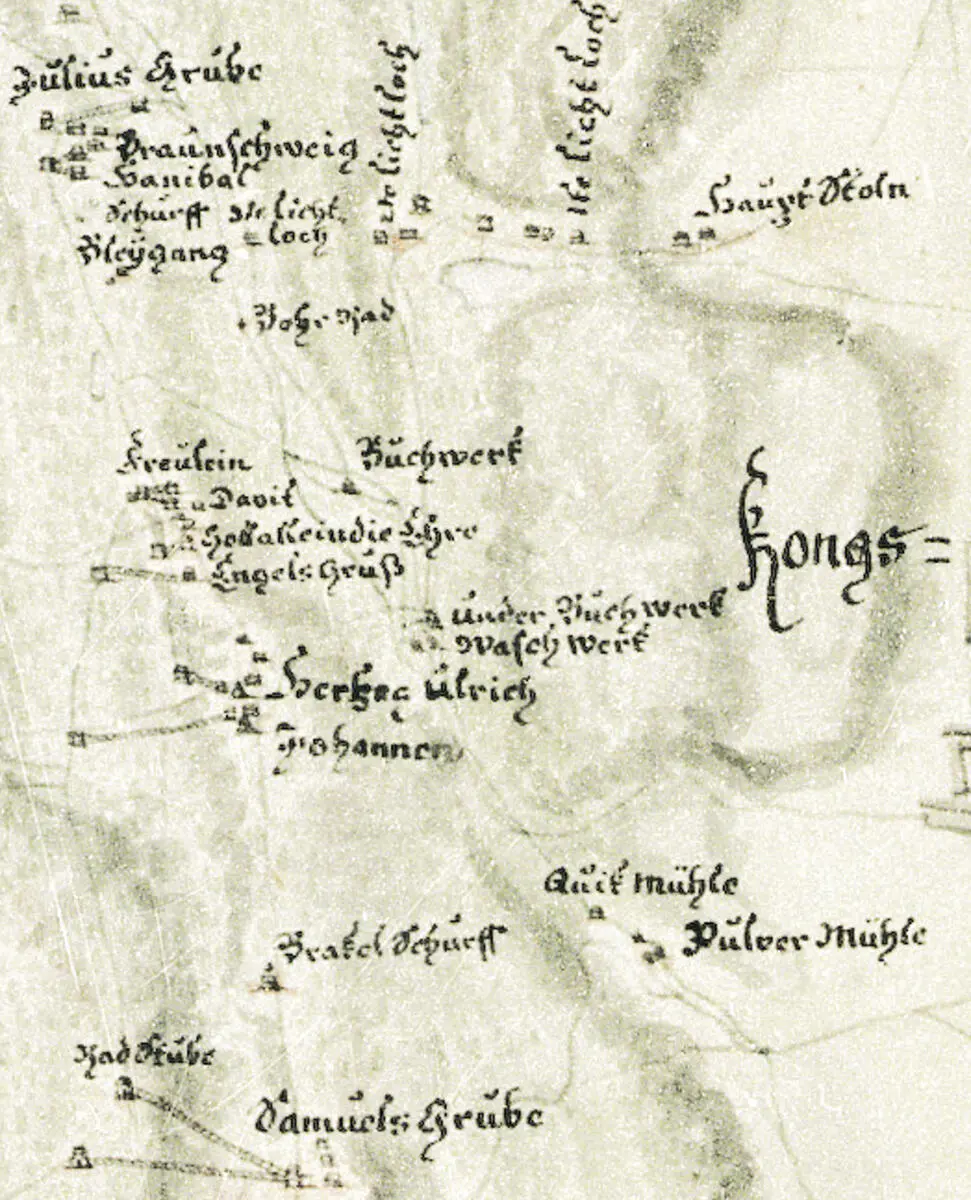 Julius Grube
Braunschweig
Hanibal
Schurff
3te licht
loch
Bleÿgang
2te lichtloch
1te lichtloch
Haupt Stoln
Bohr Rad
Freulein
Buchwerk
David
Gott allein die Ehre
Engels Gruß
Under Buchwerk
Waschwerk
Hertzog Ulrich
Johannes
Kongs=
Quik Mühle
Pulver Mühle
Brakel Schurff
Rad Stube
Samuels Grube